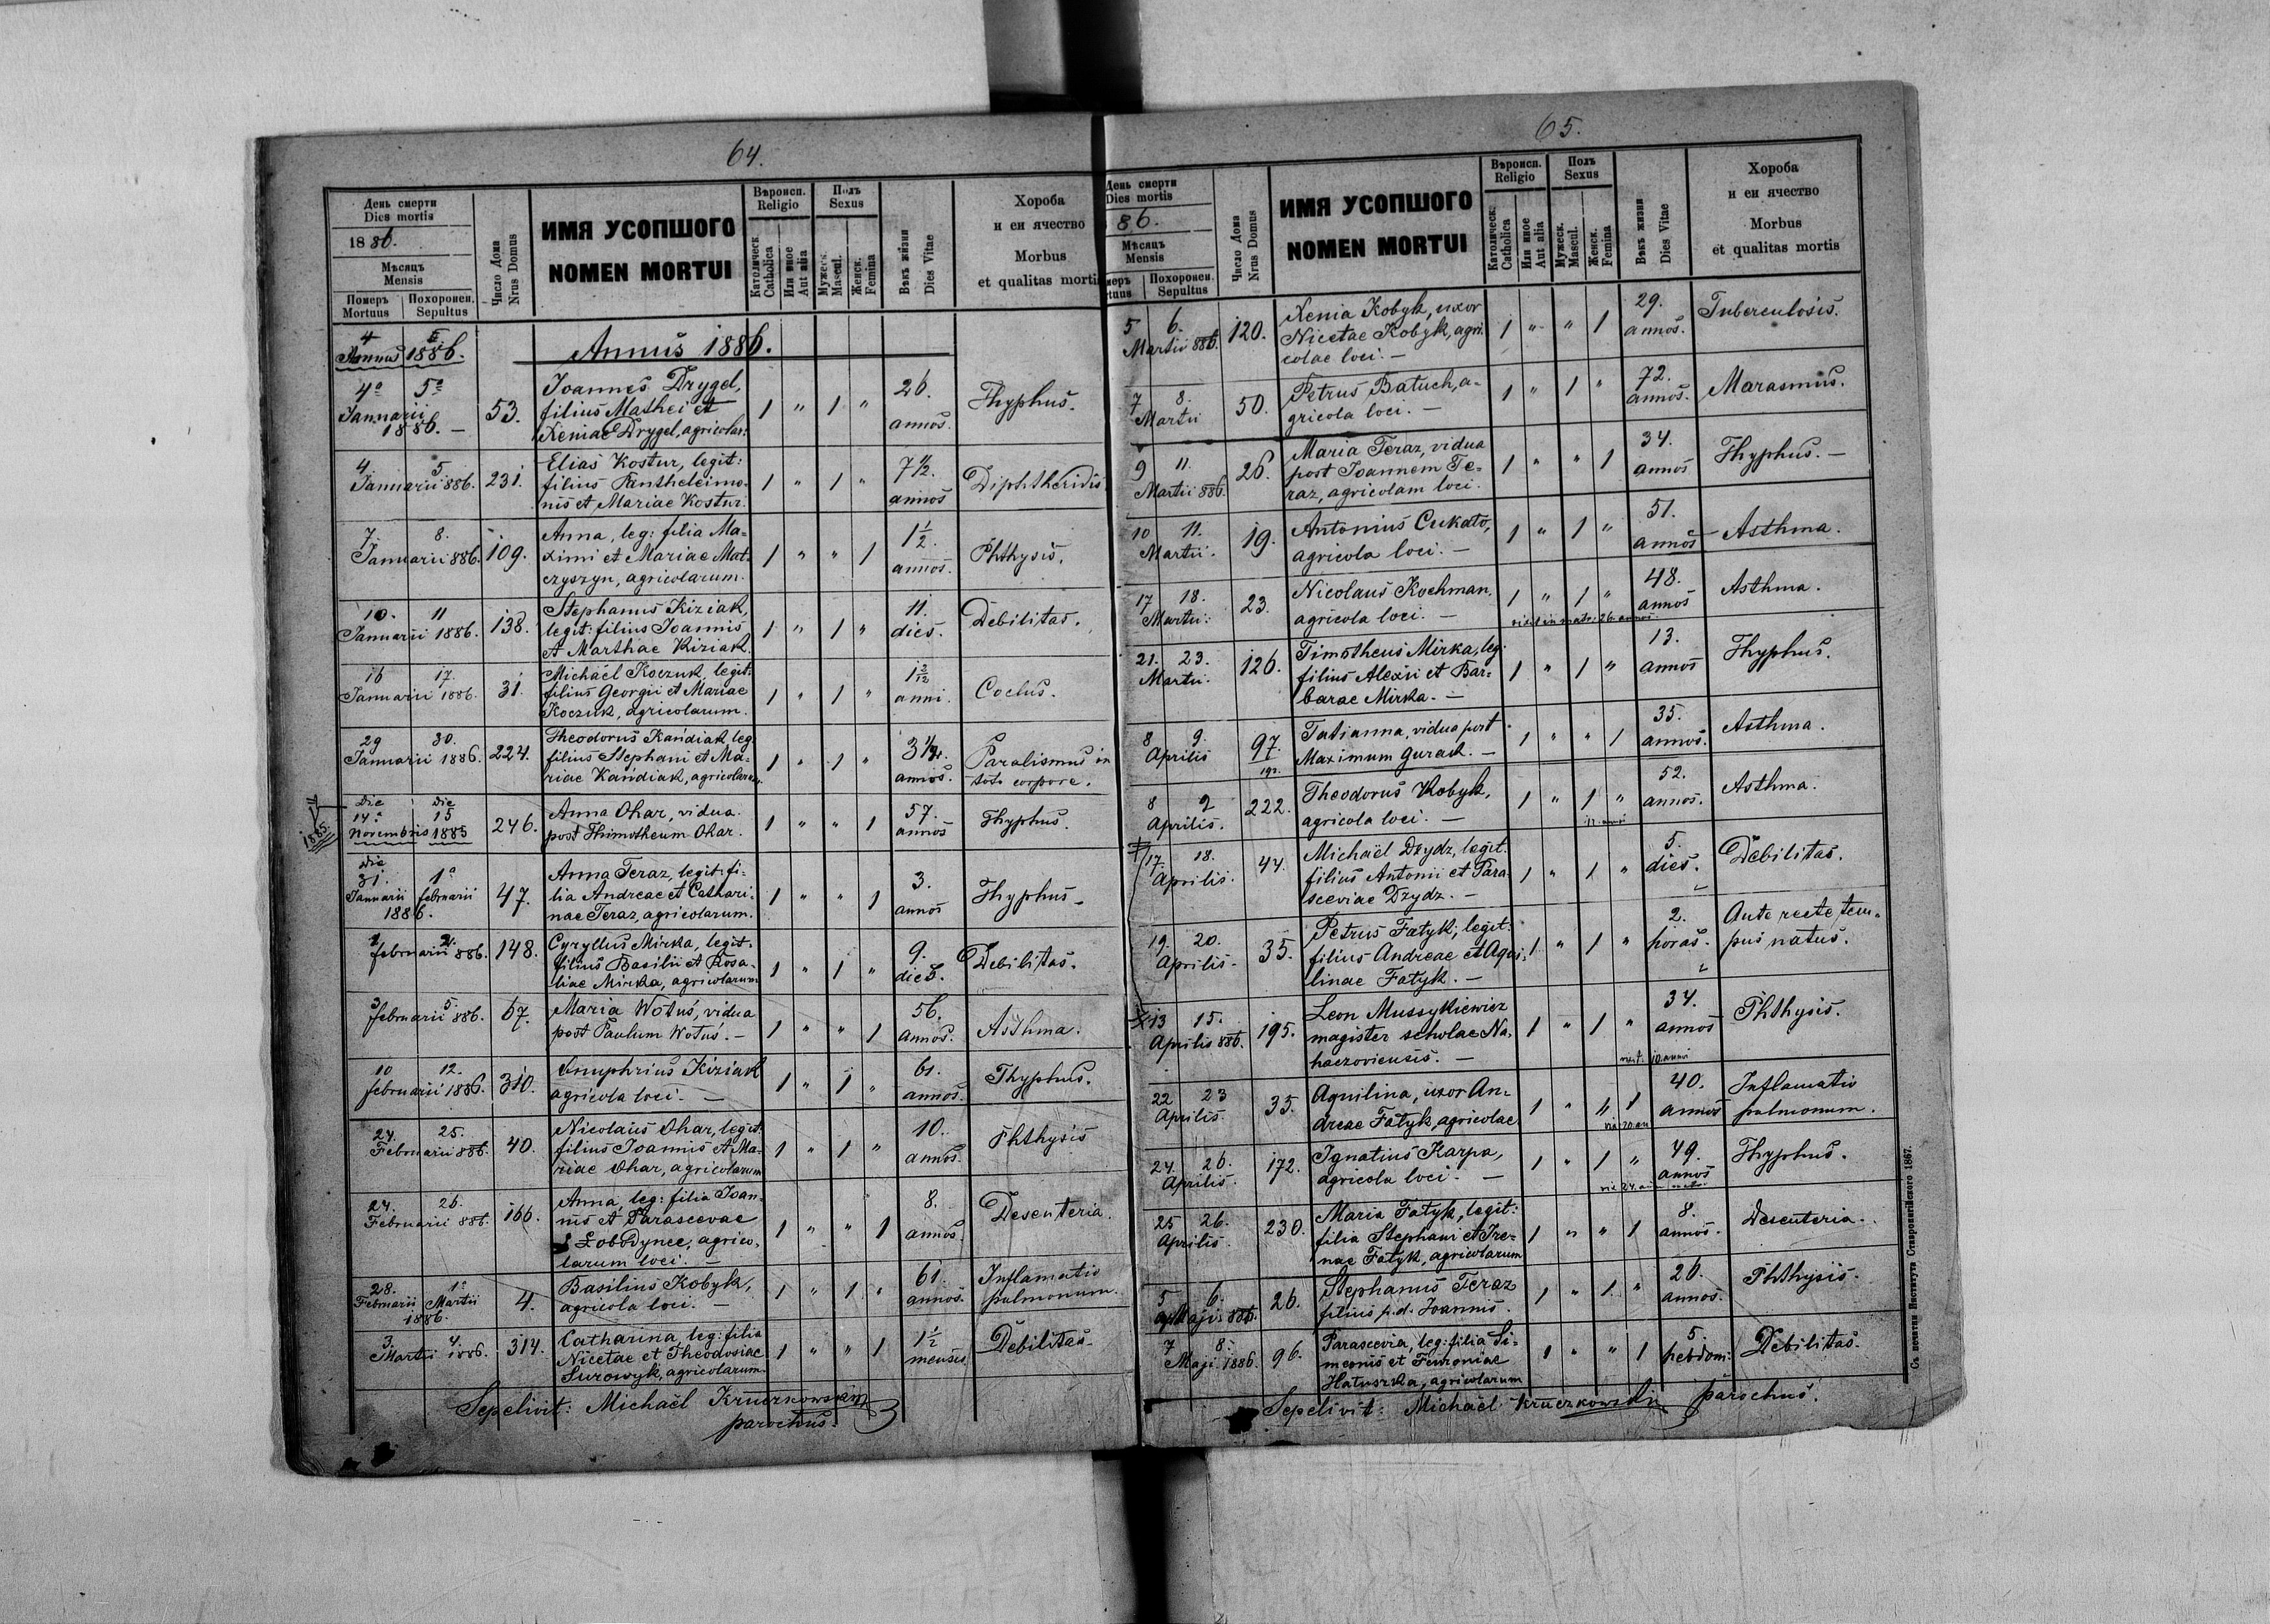 64.
День смерти
Dies mortis
1886.
Мѣсяцъ
Mensis
Померъ
Mortuus
Похоронен.
Sepultus
Число Дома
Nrus Domus
ИМЯ УСОПШОГО
NOMEN MORTUI
Вѣроисп.
Religio
Католическ.
Catholica
Или иное
Aut alia
Полъ
Sexus
Мужеск.
Mascul.
Женск.
Femina
Вѣкъ жизни
Dies Vitae
Хороба
и еи ячество
Morbus
et qualitas mortis
Annus 1886.
Annus 1886.
4º 5º
Januarii
1886. —
53.
Joannes Drygel,
filius Mathei et
Xeniae Drygel, agricolar:
1 " 1 "
26.
annos.
Thyphus.
4. 5
Januarii 886.
231.
Elias Kostur, legit:
filius Pantheleimo-
nis et Mariae Kostur.
1 " 1 "
7 1/2.
annos
Diphtheridis
7. 8.
Januarii 886.
109.
Anna, leg: filia Ma-
ximi et Mariae Mat-
czyszyn, agricolarum.
1 " " 1
1 1/2.
annos.
Phthysis.
10. 11
Januarii 1886.
138.
Stephanus Kiziak,
legit: filius Joannis
et Marthae Kiziak.
1 " 1 "
11.
dies.
Debilitas.
16 17.
Januarii 1886.
31.
Michaël Koczuk, legit:
filius Georgii et Mariae
Koczuk, agricolarum.
1 " 1 "
1 2/12
anni.
Coclus.
29 30.
Januarii 1886.
224.
Theodorus Kańdiak leg
filius Stephani et Ma-
riae Kańdiak, agricolarum.
1 " 1 "
annos.
Paralismus in
toto corpore.
1885.
Die Die
14º 15
Novembris 1885
246.
Anna Ohar, vidua
post Thimotheum Ohar.
1 " " 1
57.
annos
Thyphus.
Die
31. 1º
Januarii februarii
1886.
47.
Anna Teraz, legit: fi-
lia Andreae et Cathari-
nae Teraz, agricolarum.
1 " " 1
3.
annos
Thyphus-
2.
februarii 886.
148.
Cyryllus Mirka, legit.
filius Basilii et Rosa-
liae Mirka, agricolarum
1 " 1 "
9.
dies.
Debilitas.
3 5.
februarii 886.
67.
Maria Wotuś, vidua
post Paulum Wotuś. —
1 " " 1
56.
Annos.
Asthma.
10 12.
februarii 1886.
310.
Onuphrius Kiziak
agricola loci. —
1 " 1 "
61.
annos.
Thyphus.
24. 25.
Februarii 886.
40.
Nicolaus Ohar, legit:
filius Joannis et Ma-
riae Ohar, agricolarum
1 " 1 "
10.
annos.
Phthysis
24. 26.
Februarii 886.
166.
Anna, leg: filia Joan-
nis et Parascevae
Łobodynec, agrico-
larum loci. —
1 " " 1
8.
annos.
Desenteria.
28. 1º
Februarii Martii
1886.
4.
Basilius Kobyk,
agricola loci. —
1 " 1 "
61.
annos.
Inflamatio
pulmonum.
3. 4.
Martii 1886.
314.
Catharina, leg: filia
Nicetae et Theodosiae
Surowyk, agricolarum.
1 " " 1
1 1/2
menses
Debilitas-
Sepelivit: Michaël Kruczkowski
parochus.
65.
День смерти
Dies mortis
86.
Мѣсяцъ
Mensis
меръ
rtuus
Похоронен.
Sepultus
Число Дома
Nrus Domus
ИМЯ УСОПШОГО
NOMEN MORTUI
Вѣроисп.
Religio
Католическ.
Catholica
Или иное
Aut alia
Полъ
Sexus
Мужеск.
Mascul.
Женск.
Femina
Вѣкъ жизни
Dies Vitae
Хороба
и еи ячество
Morbus
et qualitas mortis
5 6.
Martii 886.
120.
Xenia Kobyk, uxor
Nicetae Kobyk, agri-
colae loci. —
1 " " 1
29.
annos.
Tuberculosis.
7 8.
Martii
50.
Petrus Batuch, a-
gricola loci. —
1 " 1 "
72.
annos.
Marasmus.
9 11.
Martii 886.
26.
Maria Teraz, vidua
post Joannem Te-
raz, agricolam loci.
1 " " 1
34.
annos
Thyphus. —
10 11.
Martii.
19.
Antonius Cukato,
agricola loci. —
1 " 1 "
51.
annos
Asthma.
17 18.
Martii.
23.
Nicolaus Kochman,
agricola loci. —
1 " 1 "
48.
annos
Asthma.
21. 23.
Martii.
126.
Timotheus Mirka, leg.
filius Alexii et Bar-
barae Mirka. —
1 " 1 "
13.
annos
Thyphus.
8 9.
Aprilis
97.
192.
Tatianna, vidua post
Maximum Gurach. —
1 " " 1
35.
annos.
Asthma.
8 9
Aprilis.
222.
Theodorus Kobyk,
agricola loci. —
1 " 1 "
52.
annos.
Asthma.
17. 18.
Aprilis.
44.
Michaël Dzydz, legit.
filius Antonii et Para-
sceviae Dzydz. —
1 " 1 "
5.
dies.
Debilitas.
19. 20.
Aprilis-
35.
Petrus Fatyk, legit.
filius Andreae et Aqui-
linae Fatyk. —
1 " 1 "
2.
horas.
Ante recte tem-
pus natus.
13 15.
Aprilis 886.
195.
Leon Mussykiewicz
magister scholae Na-
haczoviensis. —
1 " 1 "
34.
annos
Phthysis.
22 23
Aprilis.
35.
Aquilina, uxor An-
dreae Fatyk, agricolae
1 " " 1
40.
annos
Inflamatio
pulmonum.
24. 26.
Aprilis.
172.
Ignatius Karpa,
agricola loci. —
1 " 1 "
49.
annos
Thyphus.
25 26.
Aprilis.
230.
Maria Fatyk, legit:
filia Stephani et Ire-
nae Fatyk, agricolarum
1 " " 1
8.
annos.
Desenteria.
5 6.
Maji 886.
26.
Stephanus Teraz
filius p.d. Joannis.
1 " 1 "
26.
annos.
Phthysis.
7 8.
Maji 1886.
96.
Parascevia, leg: filia Si-
meonis et Fewroniae
Hatuszka, agricolarum
1 " " 1
5.
hebdom:
Debilitas.
Sepelivit: Michaël Kruczkowski parochus.
Съ печатни Института Ставропигійского 1867.